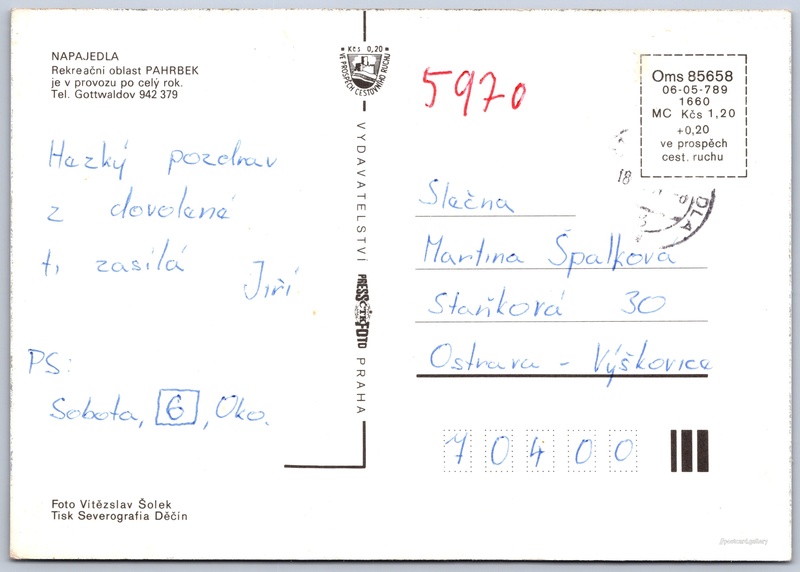 NAPAJEDLA
Rekreační oblast PAHRBEK
je v provozu po celý rok.
Tel. Gottwaldov 942 379
Hezký pozdrav
z dovolené
ti zasílá
Jiří
PS:
Sobota, 6, Oko.
Foto Vítězslav Šolek
Tisk Severografia Děčín
Kčs 0,20
VE PROSPĚCH CESTOVNÍHO RUCHU
VYDAVATELSTVÍ
PRESSFOTO
ČTK
PRAHA
5970
Oms 85658
06-05-789
1660
MC Kčs 1,20
+0,20
ve prospěch
cest. ruchu
18
DLA
Slečna
Martina Špalkova
Staňková 30
Ostrava - Výškovice
70400
//postcard.gallery